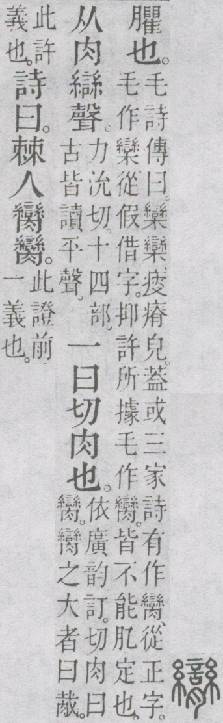 臠
臞也。毛詩傳曰。欒欒瘦瘠皃。葢或三家詩有作臠從正字。毛作欒從假借字。抑許所據毛作臠。皆不能肊定也。
从肉䜌聲。力沇切。十四部。古皆讀平聲。一曰切肉也。依廣韵訂。切肉曰臠。臠之大者曰胾。
此許義也。詩曰。棘人臠臠。此證前一義也。